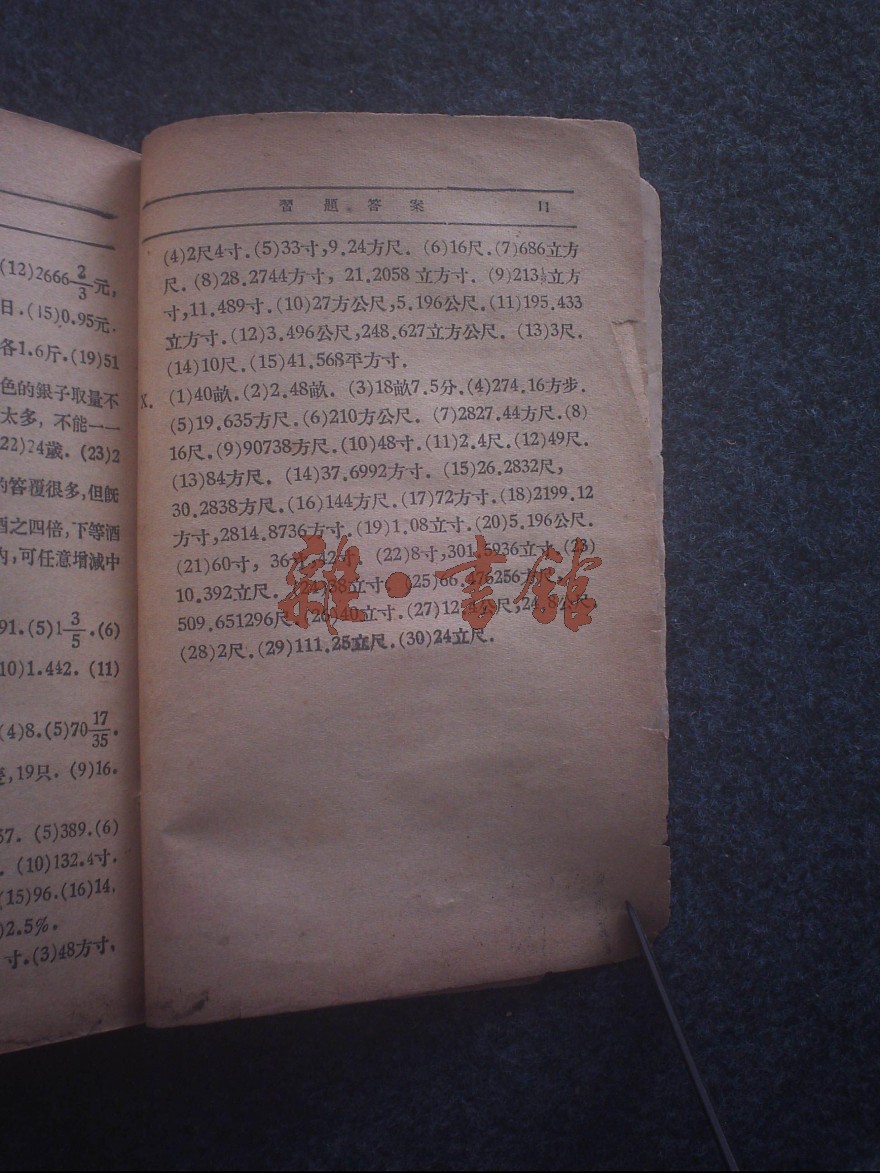 (12)2666 2/3元,
日.(15)0.95元.
各1.6斤.(19)51
色的銀子取量不
太多，不能一一
22)24歲. (23)2
的答覆很多,但旣
酒之四倍,下等酒
內,可任意增減中
91.(5)1 3/5.(6)
10)1.442. (11)
(4)8.(5)70 17/35.
,19只. (9)16.
57. (5)389.(6)
. (10)132.4寸.
(15)96.(16)14.
)2.5%.
寸.(3)48方寸,
習 題 答 案 11
(4)2尺4寸.(5)33寸,9.24方尺. (6)16尺.(7)686立方
尺. (8)28.2744方寸, 21.2058 立方寸. (9)213⅓立方
寸,11.489寸.(10)27方公尺,5.196公尺.(11)195.433
立方寸.(12)3.496公尺,248.627立方公尺. (13)3尺.
(14)10尺.(15)41.568平方寸.
X. (1)40畝.(2)2.48畝. (3)18畝7.5分.(4)274.16方步.
(5)19.635方尺.(6)210方公尺. (7)2827.44方尺.(8)
16尺.(9)90738方尺.(10)48寸.(11)2.4尺.(12)49尺.
(13)84方尺. (14)37.6992方寸. (15)26.2832尺,
30.2838方尺.(16)144方尺.(17)72方寸.(18)2199.12
方寸,2814.8736方寸.(19)1.08立寸.(20)5.196公尺.
(21)60寸, 36寸,42寸. (22)8寸,301.5936立寸.(23)
10.392立尺. 立寸. (25)66.476256方尺,
509.651296尺. 40立寸.(27)12.4公尺,24.8公尺.
(28)2尺.(29)111.25立尺.(30)24立尺.
雜·書館